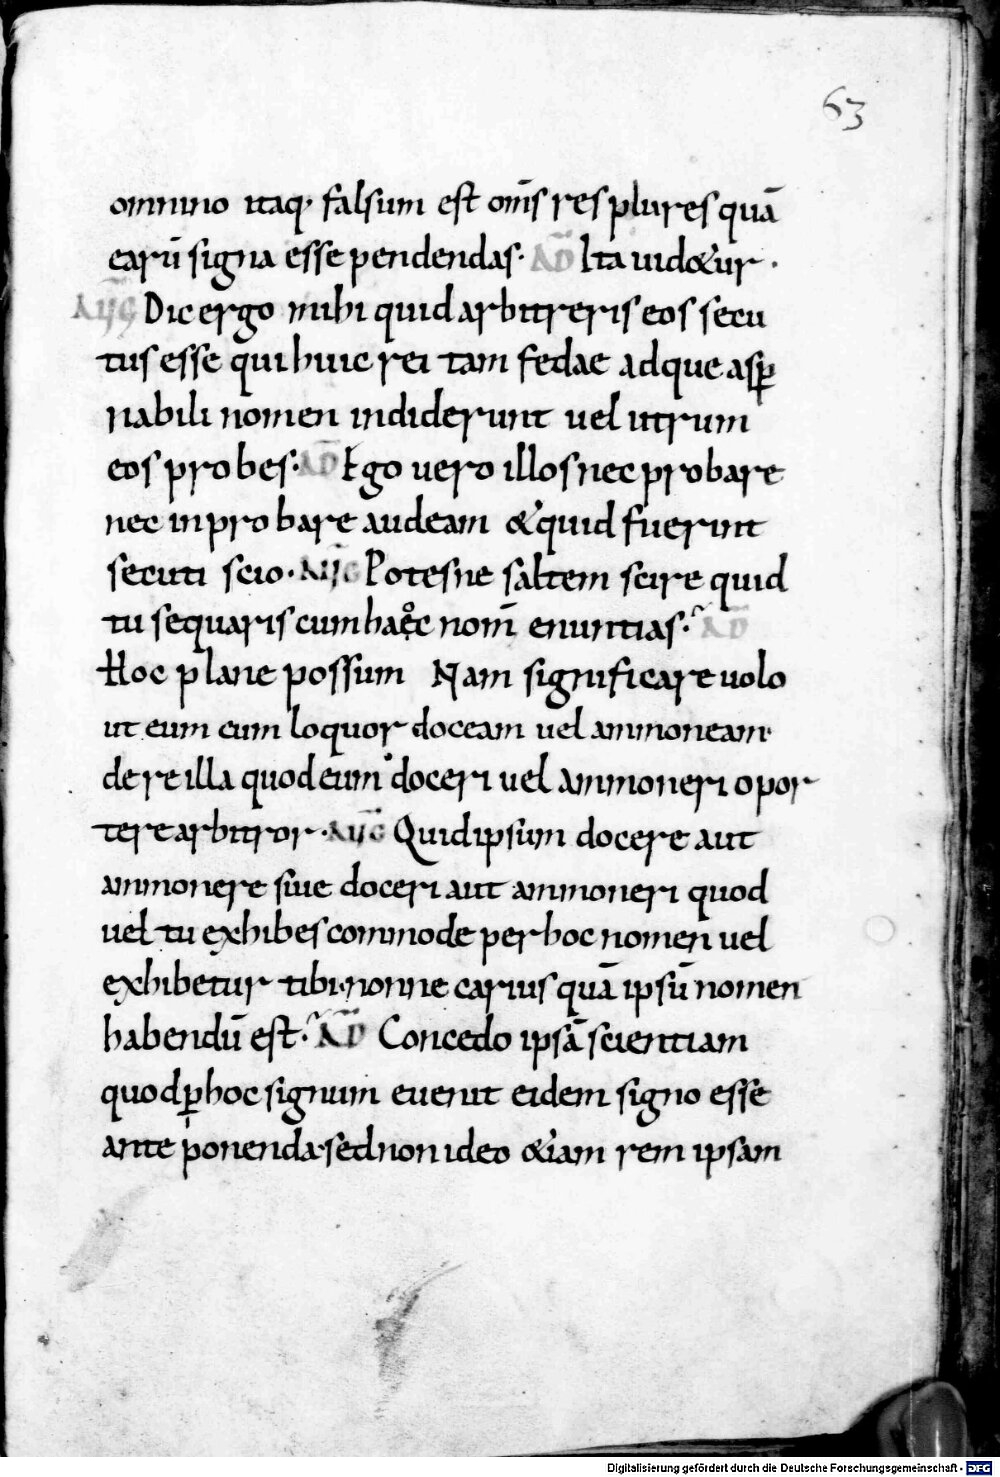 63
omnino itaq· falsum est om̄s res plures quā
earū signa esse pendendas· AD̄ Ita uid&ur·
AUG Dic ergo mihi quid arbitreris eos secu
tus esse qui huic rei tam fedae adque asp̲
nabili nomen indiderunt uel utrum
eos probes· AD̄ Ego uero illos nec probare
nec inprobare audeam &quid fuerint
secuti scio· AUG Potesne saltem scire quid
tu sequaris cum haec nom̄ enuntias· AD̄
Hoc plane possum Nam significare uolo
ut eum cum loquor doceam uel ammoneam·
de re illa quod eum doceri uel ammoneri opor
tere arbitror· AUG Quid ipsum docere aut
ammonere siue doceri aut ammoneri quod
uel tu exhibes commode per hoc nomen uel
exhibetur tibi·nonne carius quā ipsū nomen
habendū est· AD̄ Concedo ipsā scientiam
quod p̲ hoc signum euenit eidem signo esse
ante ponenda·sed non ideo &iam rem ipsam
Digitalisierung gefördert durch die Deutsche Forschungsgemeinschaft - DFG